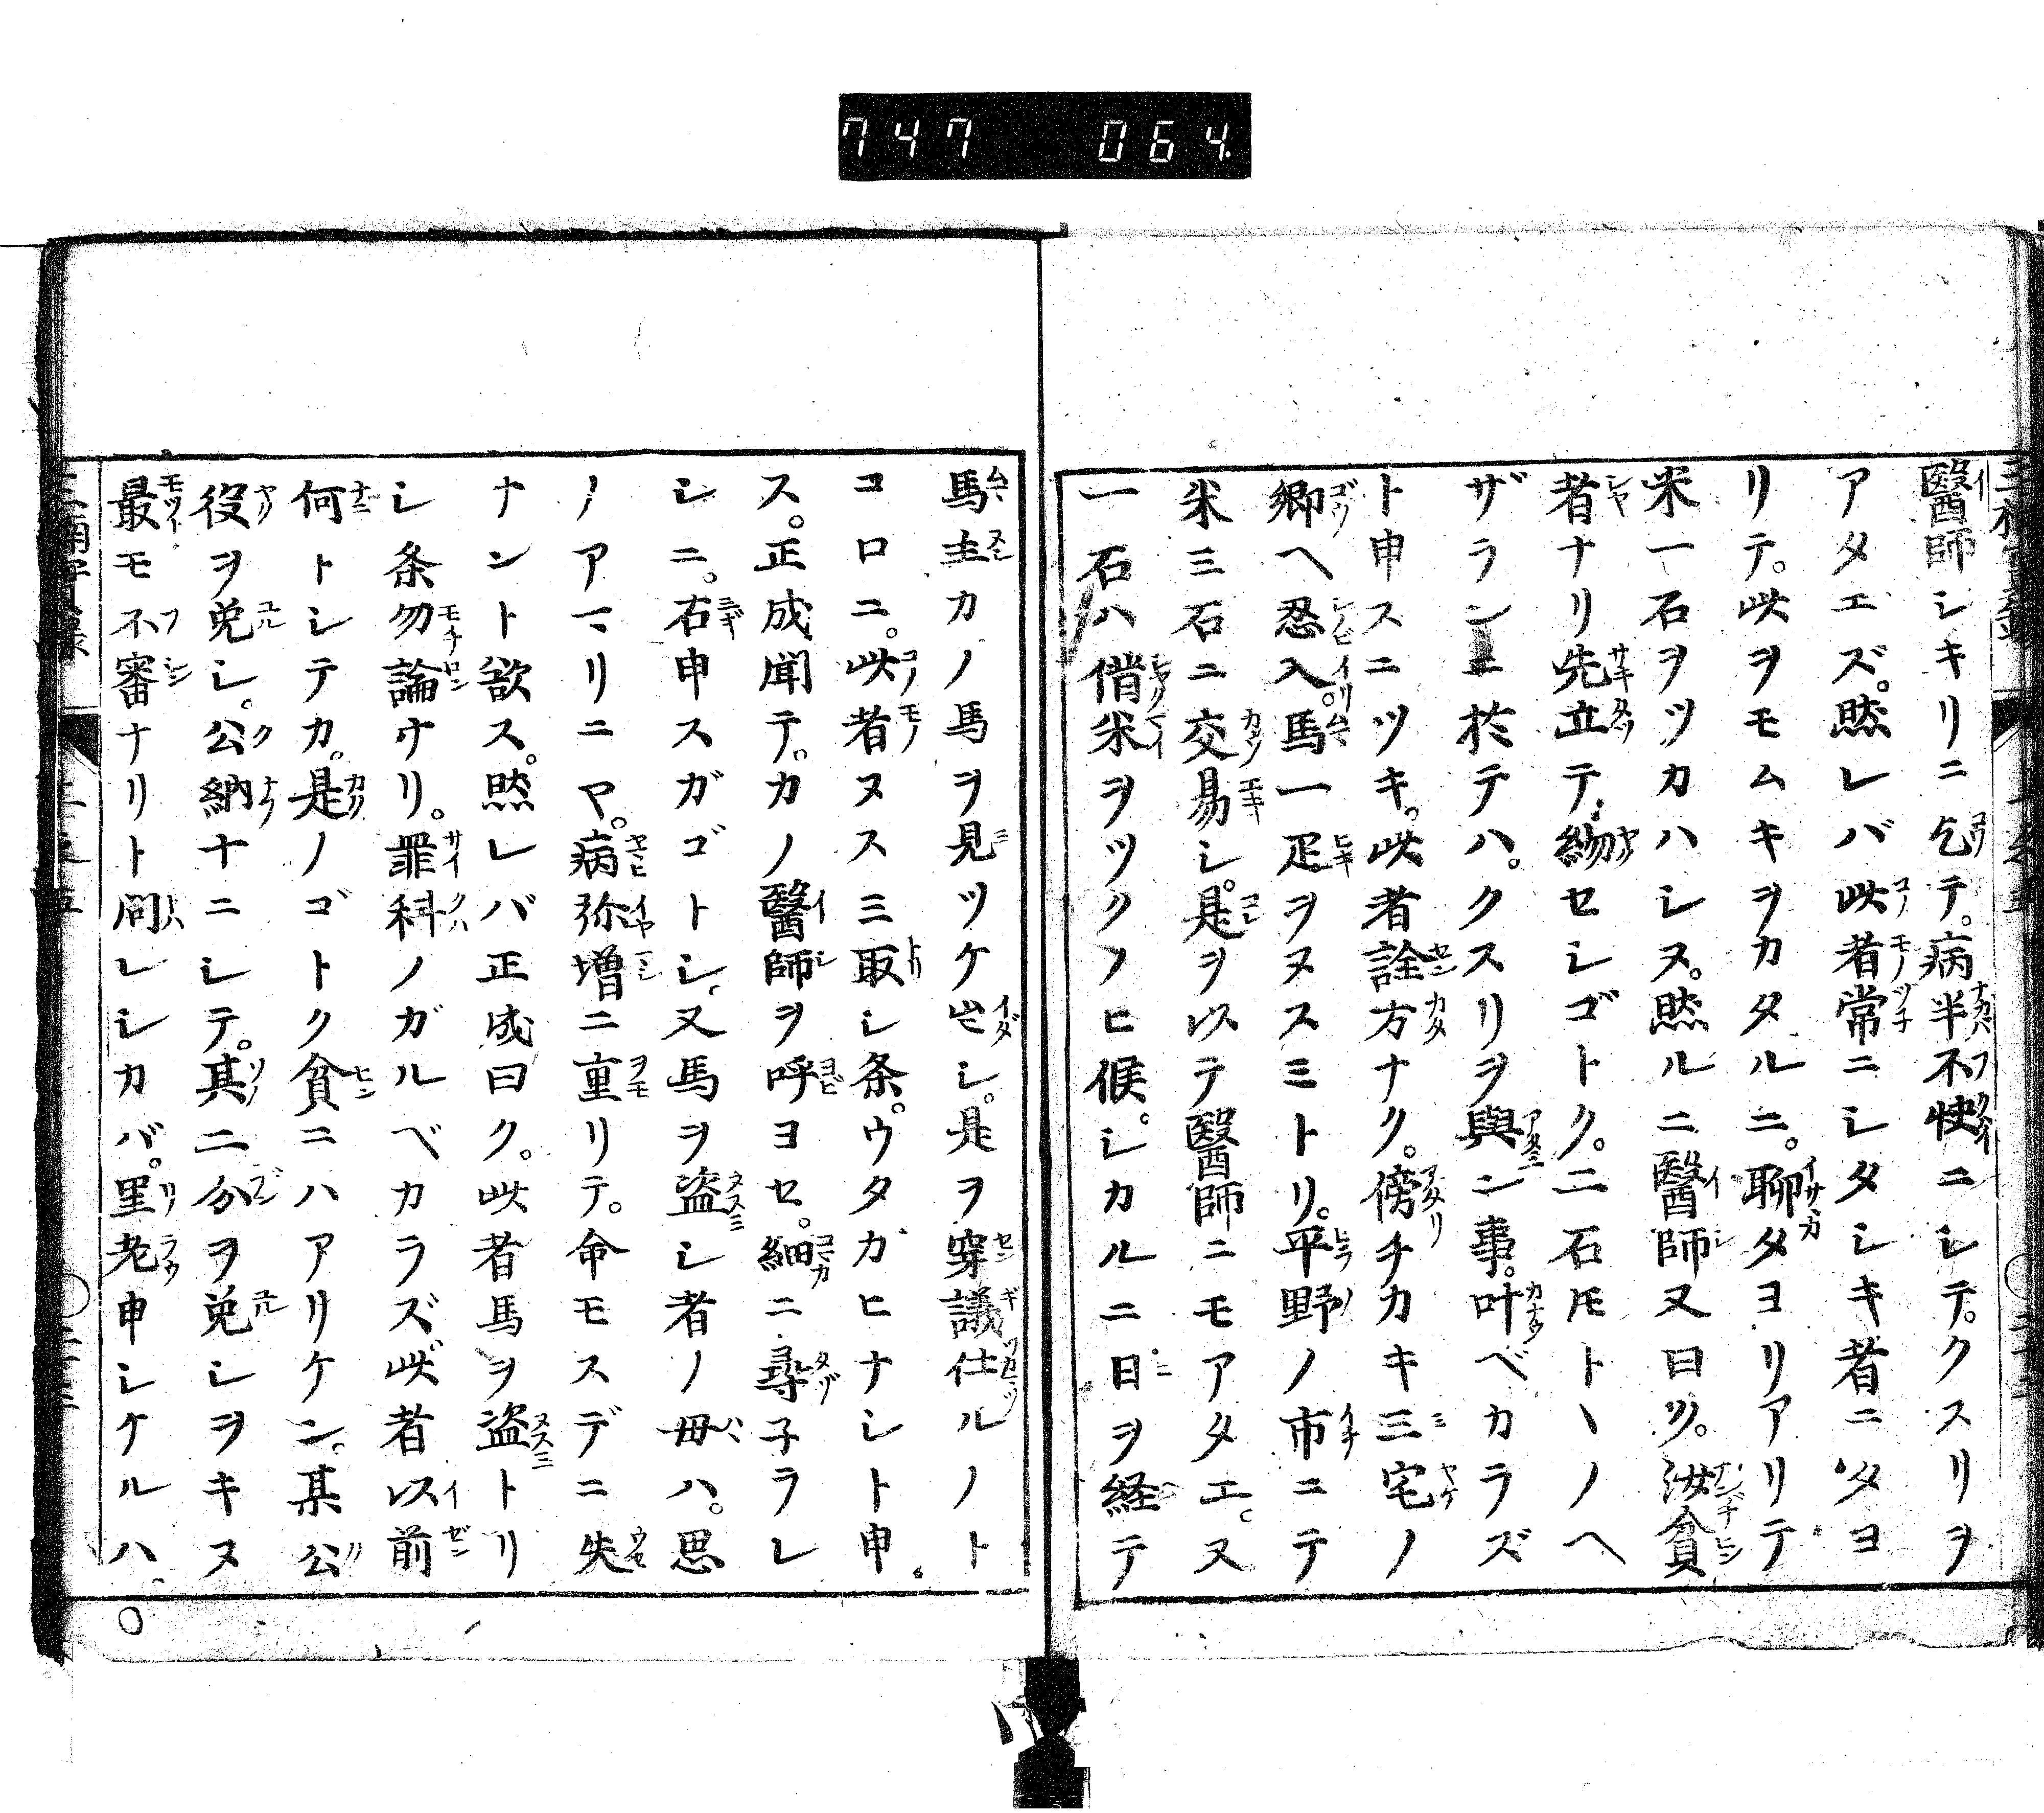 747 064
醫師シキリニ乞テ。病半不快ニシテ。クスリヲ
アタエズ。然レバ此者常ニシタシキ者ニタヨ
リテ。此ヲモムキヲカタルニ。聊タヨリアリテ
米一石ヲツカハシヌ。然ルニ醫師又曰ツ。汝貧
者ナリ先立テ
セシゴトク。二石モトヽノヘ
ザランニ於テハ。クスリヲ與ン事。叶ベカラズ
ト申スニツキ。此者詮方ナク。傍チカキ三宅ノ
郷ヘ忍入。馬一疋ヲヌスミトリ。平野ノ市ニテ
米三石ニ交易シ。是ヲ以テ醫師ニモアタエ。又
一石ハ借米ヲツクノヒ候。シカルニ日ヲ経テ
馬主カノ馬ヲ見ツケ出シ。是ヲ穿議仕ルノト
コロニ。此者ヌスミ取シ条。ウタガヒナシト申
ス。正成聞テ。カノ醫師ヲ呼ヨセ。細ニ尋子ラレ
シニ。右申スガゴトシ。又馬ヲ盗シ者ノ母ハ。思
ノアマリニヤ。病弥増ニ重リテ。命モスデニ失
ナント欲ス。然レバ正成曰ク。此者馬ヲ盗トリ
シ条勿論ナリ。罪科ノガルベカラズ。此者以前
何トシテカ。是ノゴトク貧ニハアリケン。某公
役ヲ免シ。公納十ニシテ。其二分ヲ免シヲキヌ
最モ不審ナリト問レシカバ。里老申シケルハ。